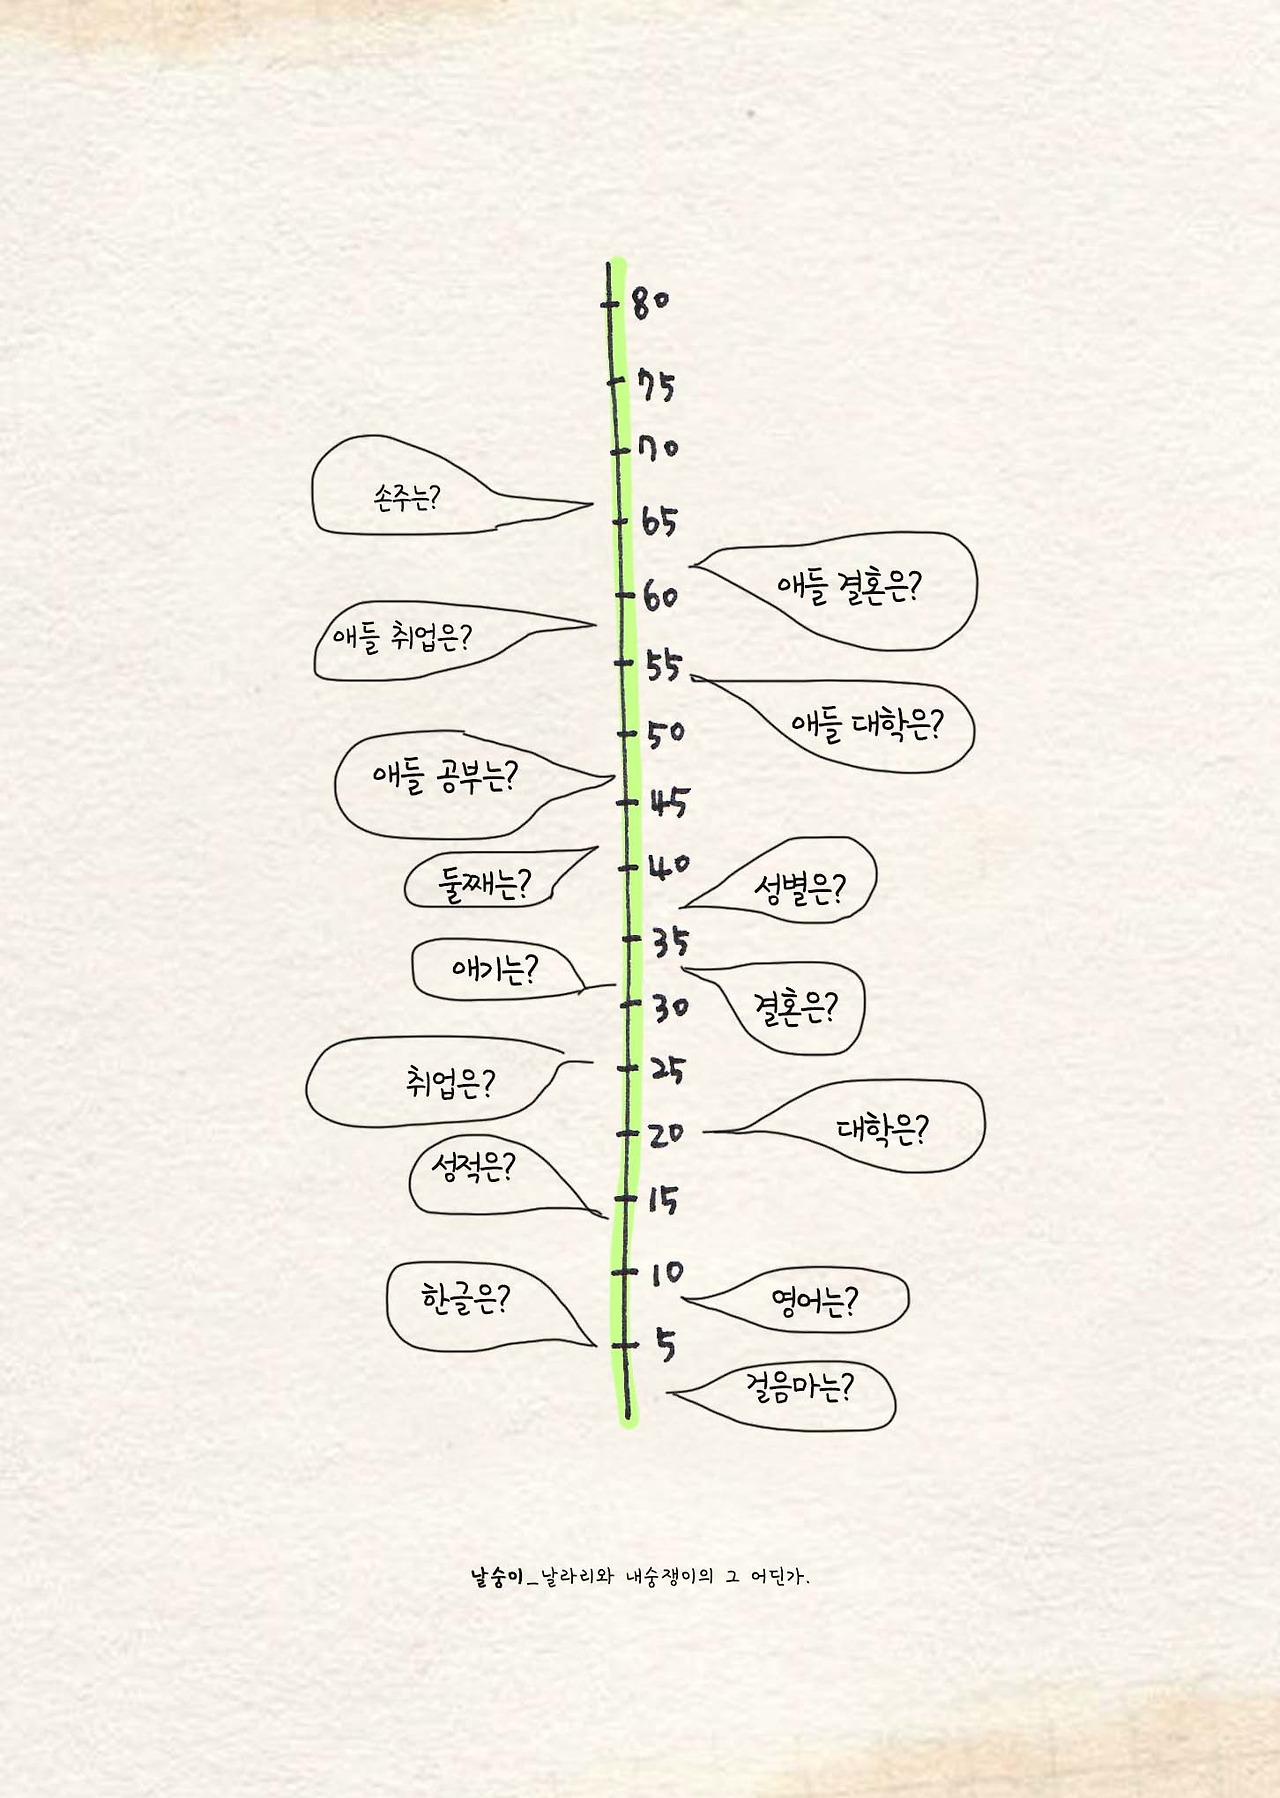 80
75
70
손주는?
65
애들 결혼은?
60
애들 취업은?
55
애들 대학은?
50
애들 공부는?
45
40
둘째는?
성별은?
35
애기는?
30
결혼은?
25
취업은?
20
대학은?
성적은?
15
10
한글은?
영어는?
5
걸음마는?
날숭이_날라리와 내숭쟁이의 그 어딘가.